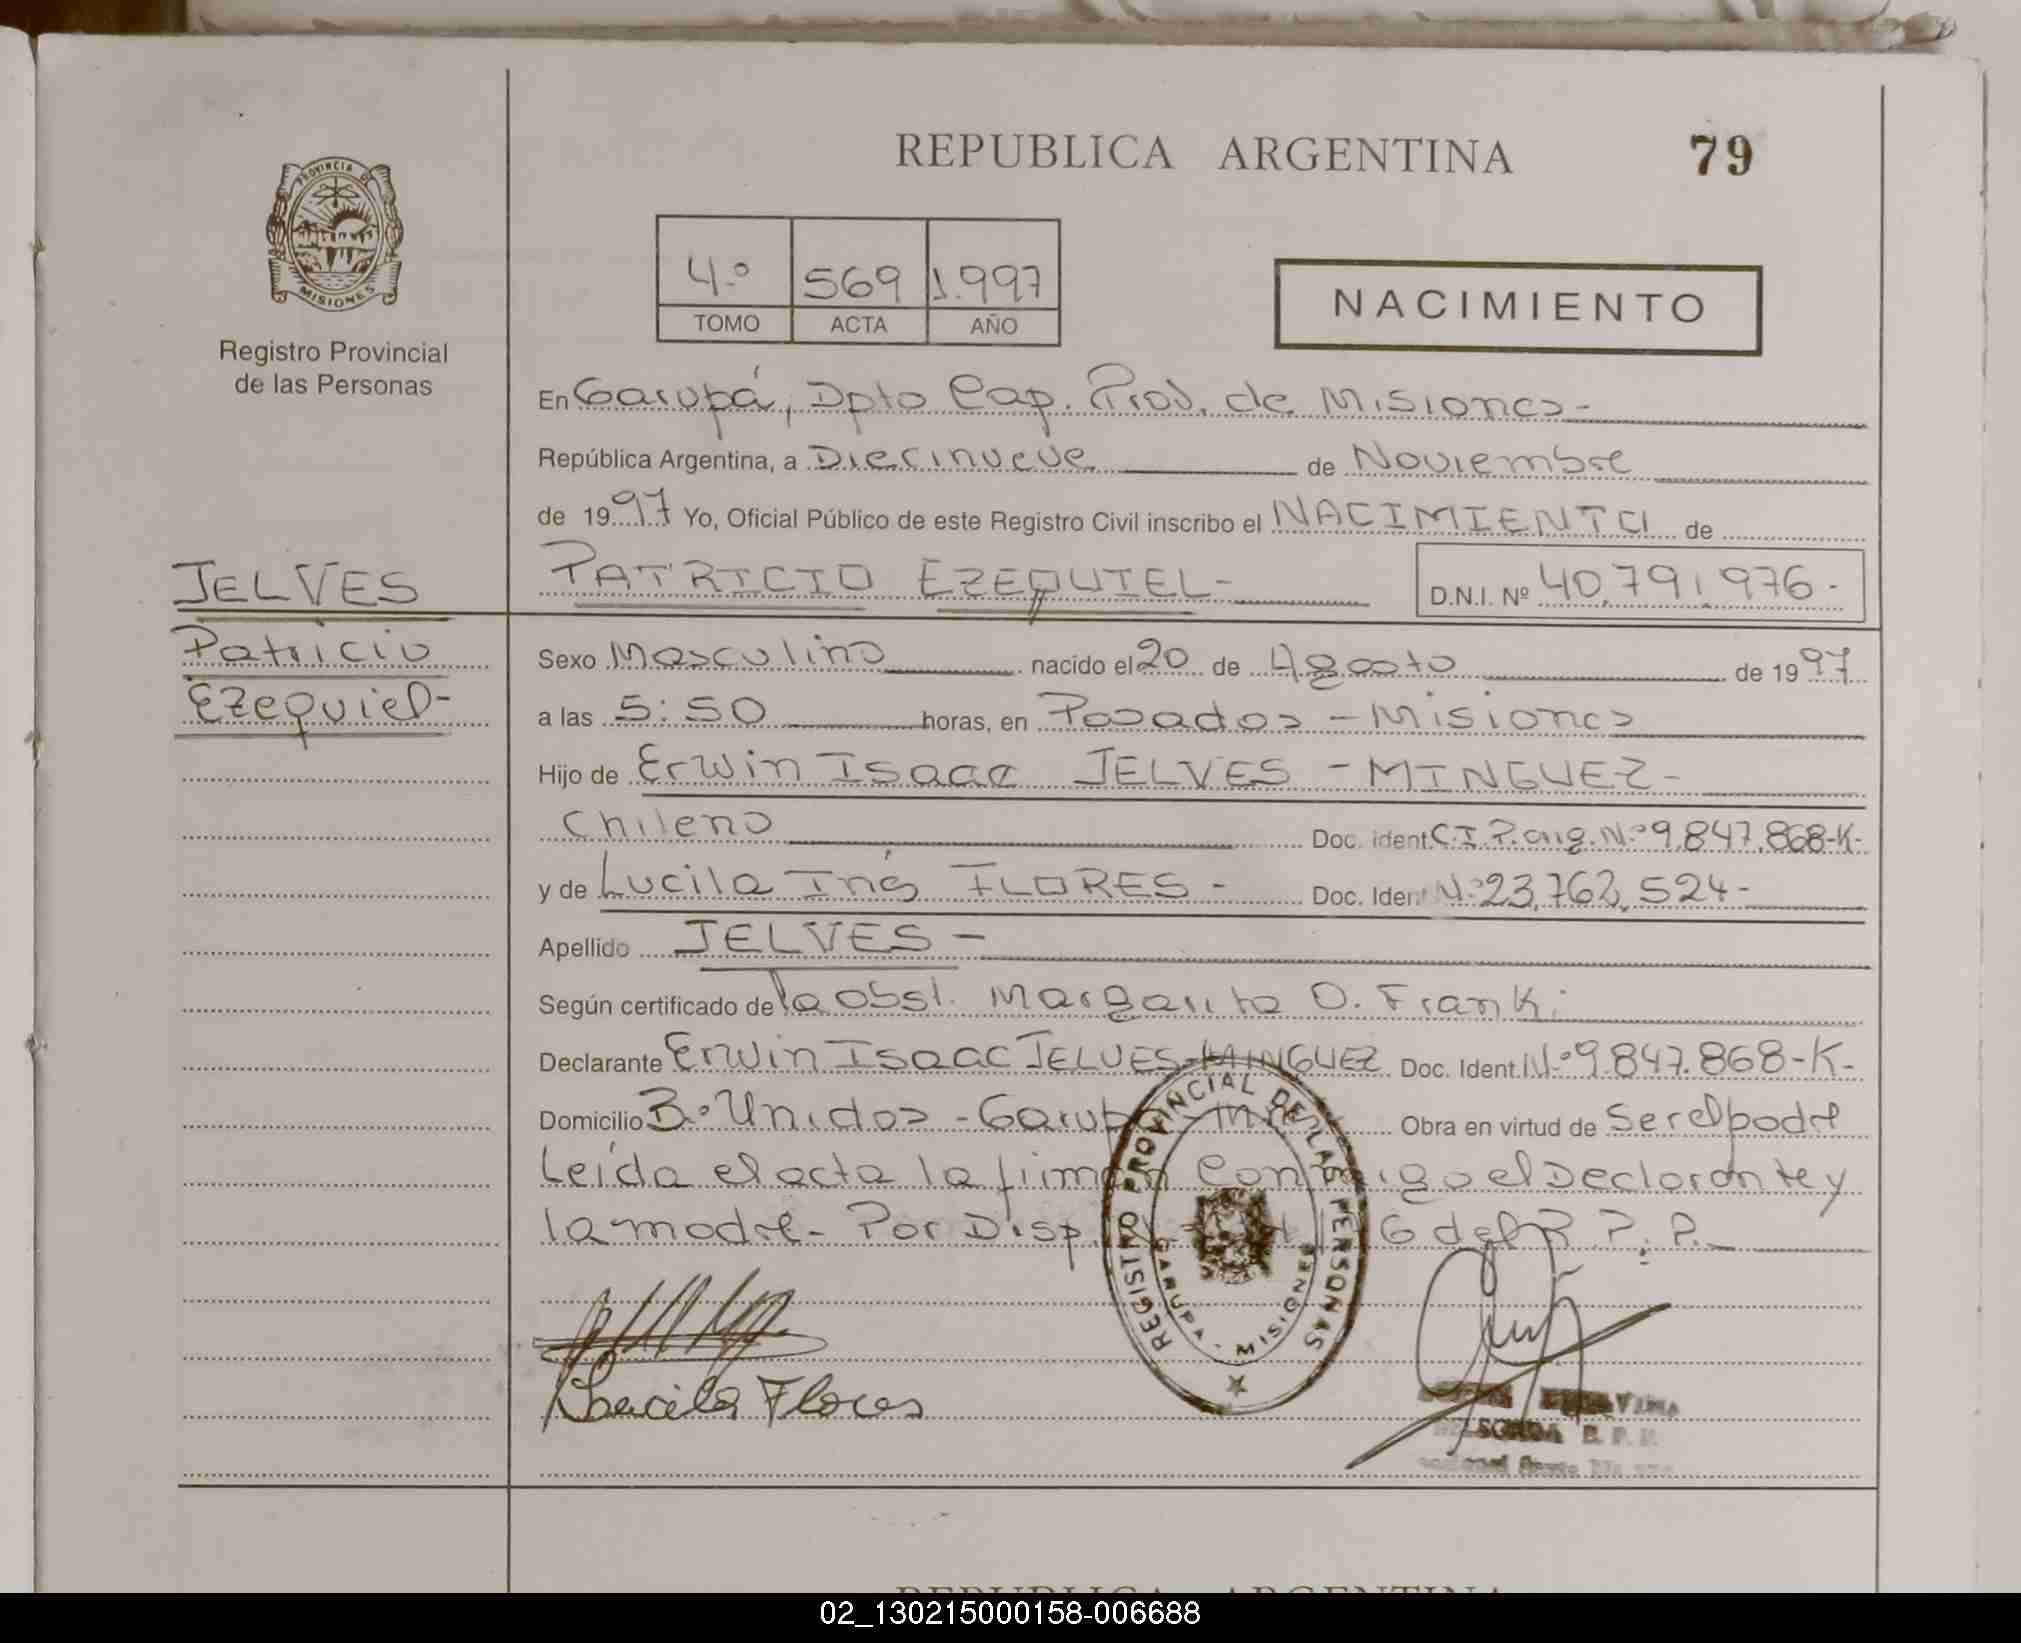 REPUBLICA ARGENTINA
79
PROVINCIA DE
MISIONES
Registro Provincial
de las Personas
4.º 569 1.997
TOMO ACTA AÑO
NACIMIENTO
En Garupá, Dpto Cap. Prov. de Misiones-
República Argentina, a Diecinueve de Noviembre
de 1997 Yo, Oficial Público de este Registro Civil inscribo el NACIMIENTO de
PATRICIO EZEQUIEL- D.N.I. Nº 40.791.976-
JELVES
Patricio
Ezequiel-
Sexo Masculino nacido el 20 de Agosto de 1997
a las 5:50 horas, en Posadas - Misiones
Hijo de Erwin Isaac JELVES - MINGUEZ-
Chileno Doc. ident. C.I.P. orig. N.º 9.847.868-K-
y de Lucila Inés FLORES- Doc. Ident N.º 23.762.524-
Apellido JELVES-
Según certificado de la obst. Margarita O. Franki
Declarante Erwin Isaac JELVES-MINGUEZ Doc. Ident. N.º 9.847.868-K-
Domicilio B.º Unidos - Garupá Obra en virtud de Ser el padre
Leída el acta la firman conmigo el Declarante y
la madre- Por Disp. del R.P.P.
REGISTRO PROVINCIAL DE LAS PERSONAS
GARUPA - MISIONES
Lucila Flores
REPUBLICA ARGENTINA
02_130215000158-006688